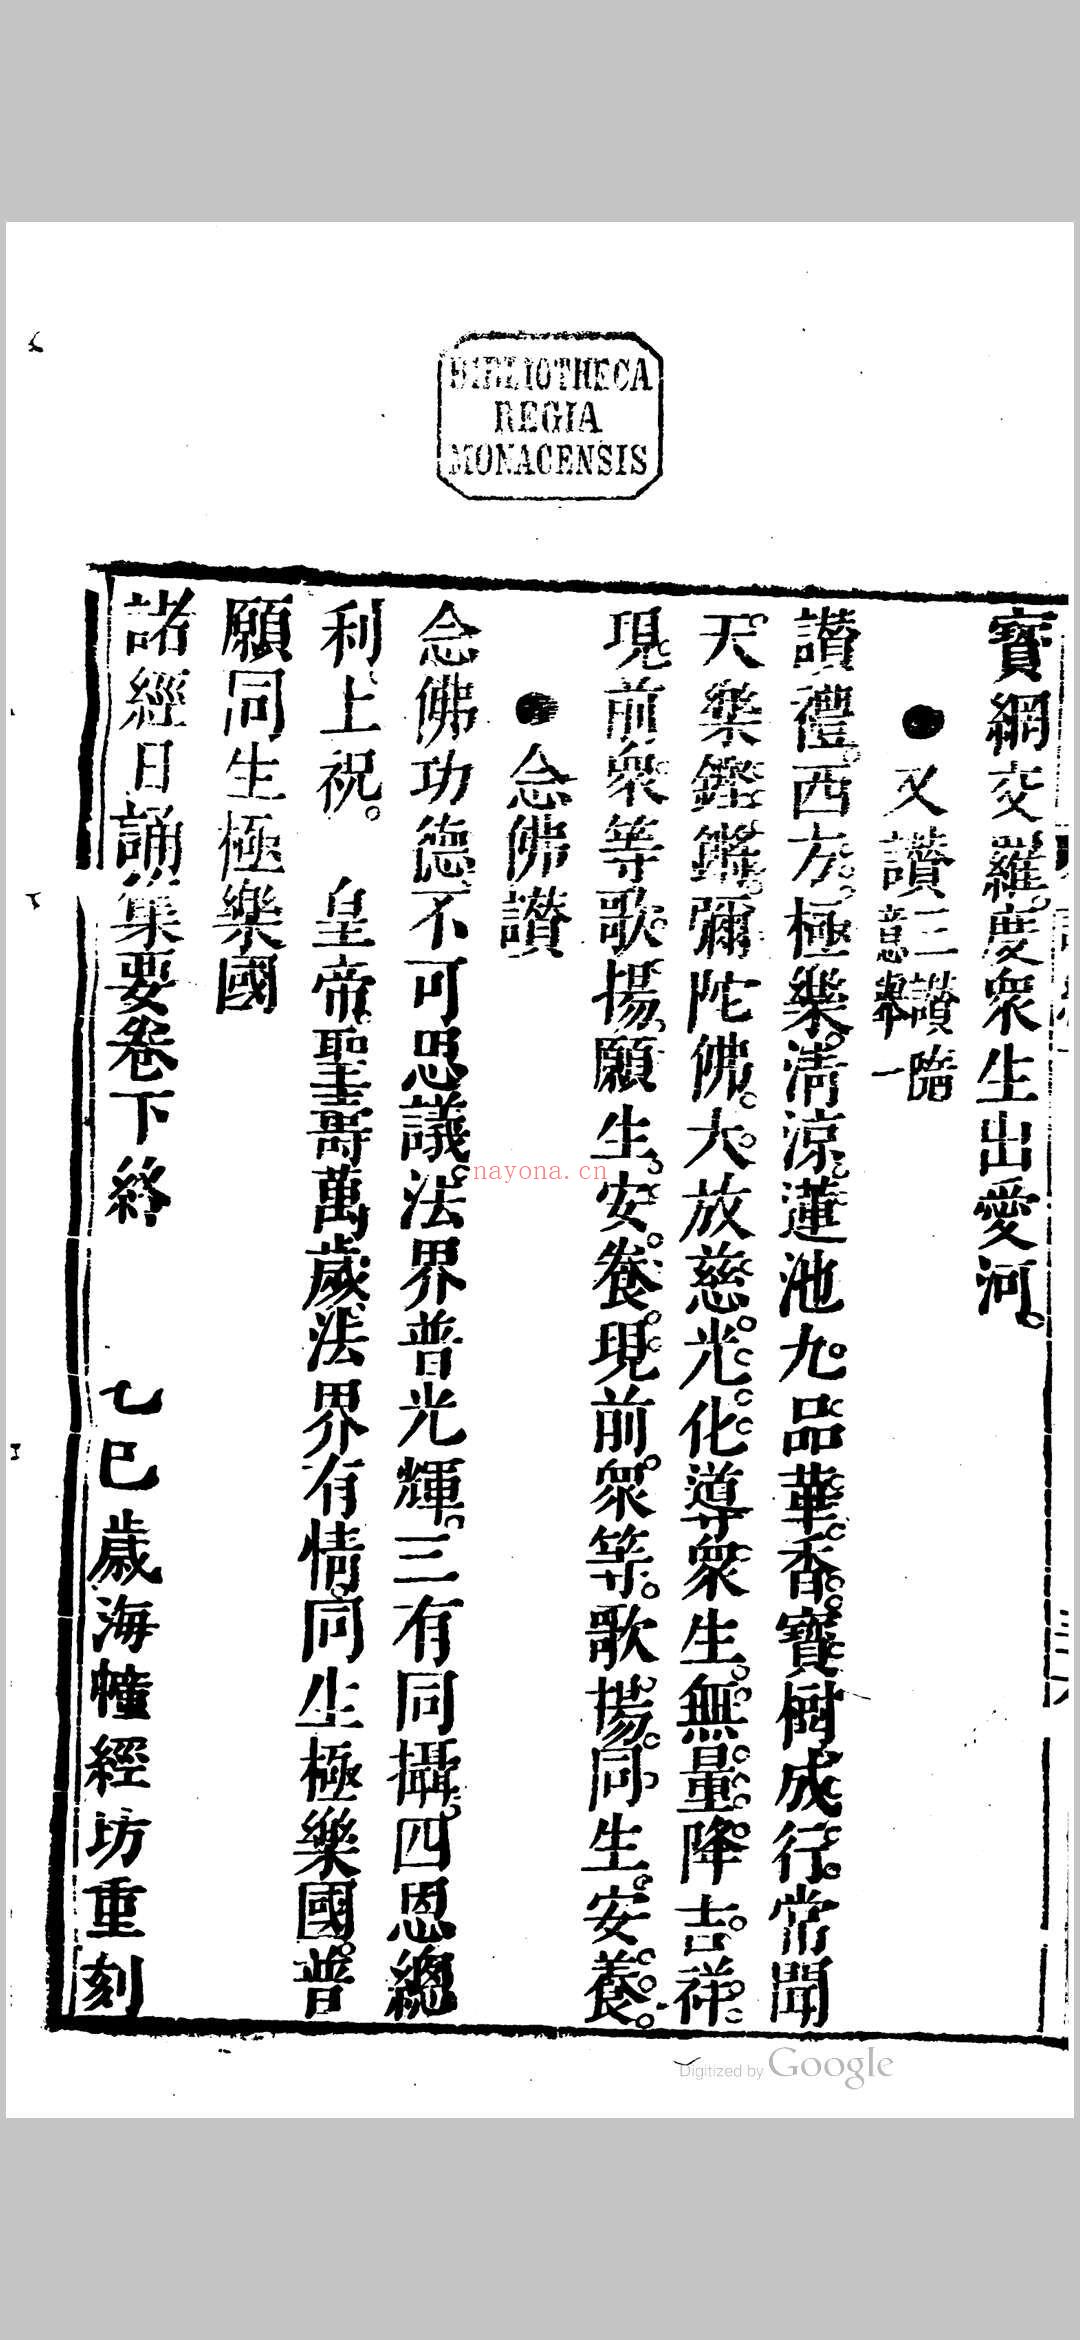 BIBLIOTHECA
REGIA
MONACENSIS
寶網交羅。度衆生出愛河。
●又讚三讚隨意舉一
讚禮西方。極樂清涼。蓮池九品華香。寶樹成行。常聞
天樂鏗鏘。彌陀佛。大放慈光。化導衆生無量。降吉祥。
現前衆等歌揚。願生安養。現前衆等。歌揚。同生安養。
●念佛讚
念佛功德不可思議。法界普光輝。三有同攝。四恩總
利上祝。 皇帝。聖壽萬歲法界有情。同生極樂國。普
願同生極樂國
諸經日誦集要卷下終 乙巳歲海幢經坊重刻
nayona.cn
Digitized by Google